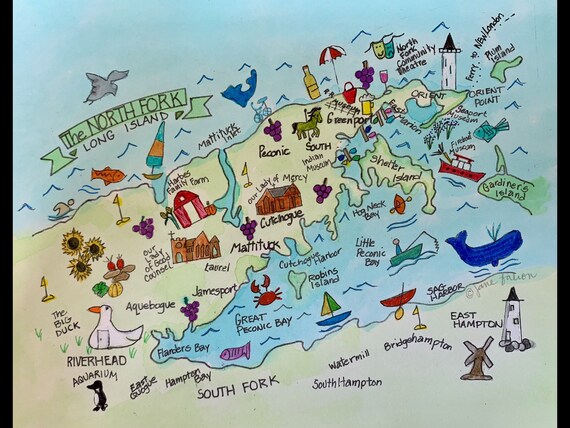 The NORTH FORK
LONG ISLAND
North
Fork
Community
Theatre
Ferry to New London
Plum
Island
ORIENT
ORIENT
POINT
Mattituck
Inlet
Greenport
East
Marion
Seaport
Museum
Fireboat
Museum
Peconic
SOUTH
Indian
Museum
Shelter
Island
Gardiners
Island
Harbes
Family Farm
Our Lady of Mercy
Cutchogue
Hog Neck
Bay
Our
Lady
of Good
Counsel
Mattituck
Laurel
Cutchogue Harbor
Little
Peconic
Bay
Robins
Island
Jamesport
SAG
HARBOR
© jane faison
Aquebogue
The
BIG
DUCK
GREAT
PECONIC BAY
EAST
HAMPTON
Bridgehampton
Flanders Bay
RIVERHEAD
AQUARIUM
Watermill
East
Quogue
Hampton
Bay
SOUTH FORK
SouthHampton